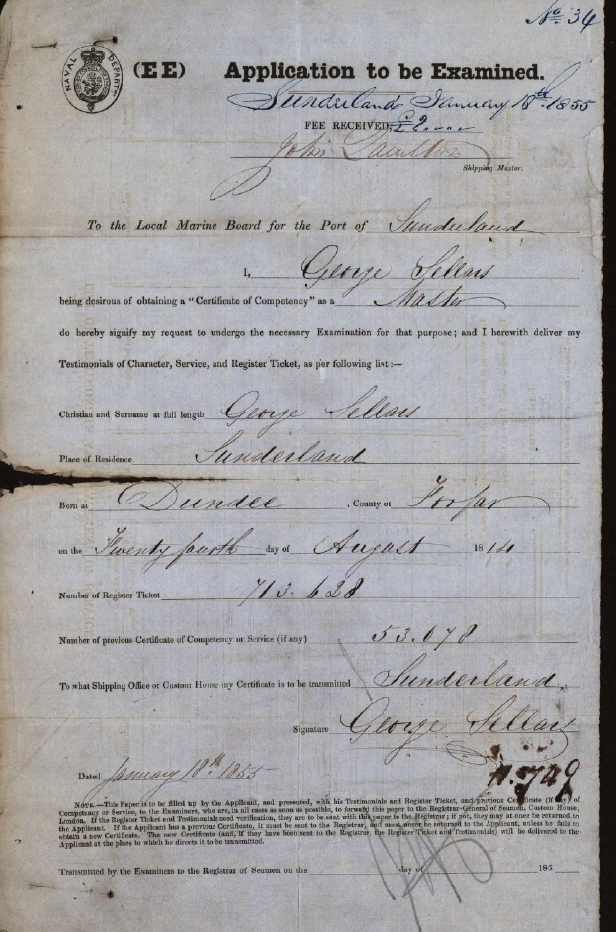 No. 34
NAVAL DEPARTMT
(EE) Application to be Examined.
Sunderland January 18th 1855
FEE RECEIVED, £2
John
Shipping Master.
To the Local Marine Board for the Port of Sunderland
I, George Sellars
being desirous of obtaining a "Certificate of Competency" as a Master
do hereby signify my request to undergo the necessary Examination for that purpose; and I herewith deliver my
Testimonials of Character, Service, and Register Ticket, as per following list:—
Christian and Surname at full length George Sellars
Place of Residence Sunderland
Born at Dundee , County of Forfar
on the Twenty fourth day of August 1814
Number of Register Ticket 713.628
Number of previous Certificate of Competency or Service (if any) 53.078
To what Shipping Office or Custom House my Certificate is to be transmitted Sunderland.
Signature George Sellars
Dated January 18th 1855
11.749
NOTE.—This Paper is to be filled up by the Applicant, and presented, with his Testimonials and Register Ticket, and previous Certificate (if any) of
Competency or Service, to the Examiners, who are, in all cases as soon as possible, to forward this paper to the Registrar-General of Seamen, Custom House,
London. If the Register Ticket and Testimonials need verification, they are to be sent with this paper to the Registrar; if not, they may at once be returned to
the Applicant. If the Applicant has a previous Certificate, it must be sent to the Registrar, and must never be returned to the Applicant, unless he fails to
obtain a new Certificate. The new Certificate (and, if they have been sent to the Registrar, the Register Ticket and Testimonials) will be delivered to the
Applicant at the place to which he directs it to be transmitted.
Transmitted by the Examiners to the Registrar of Seamen on the day of 185